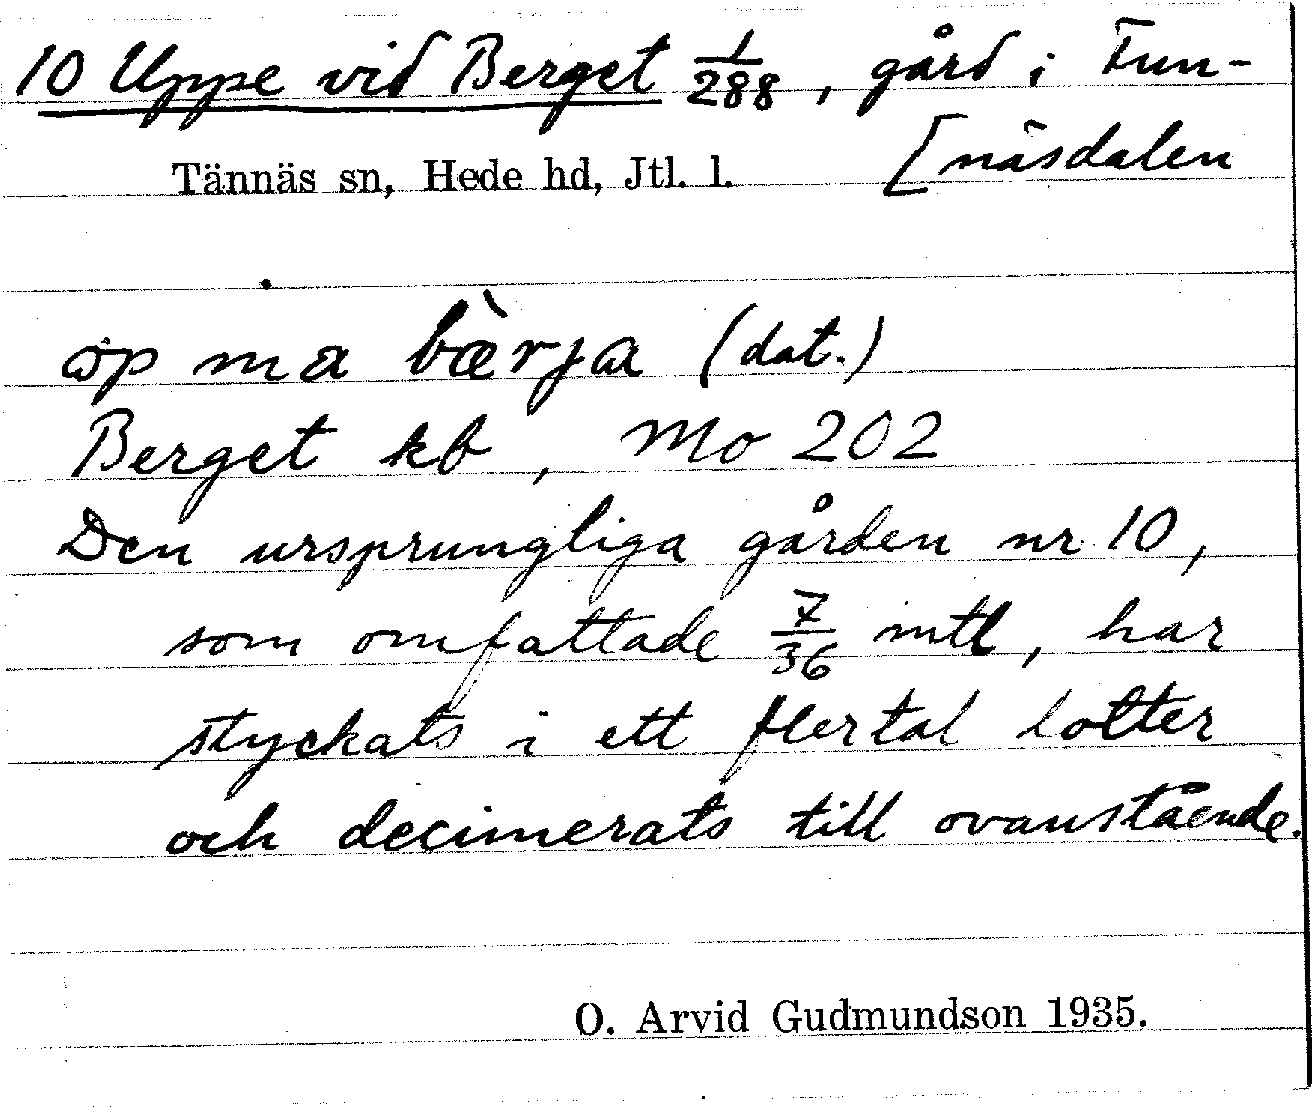 10 Uppe vid Berget 1/288, gård i Fun-
[näsdalen
Tännäs sn, Hede hd, Jtl. l.
öp ma bæ̀rja (dat.)
Berget kb, Mo 202
Den ursprungliga gården nr 10,
som omfattade 7/36 mtl, har
styckats i ett flertal lotter
och decimerats till ovanstående.
O. Arvid Gudmundson 1935.